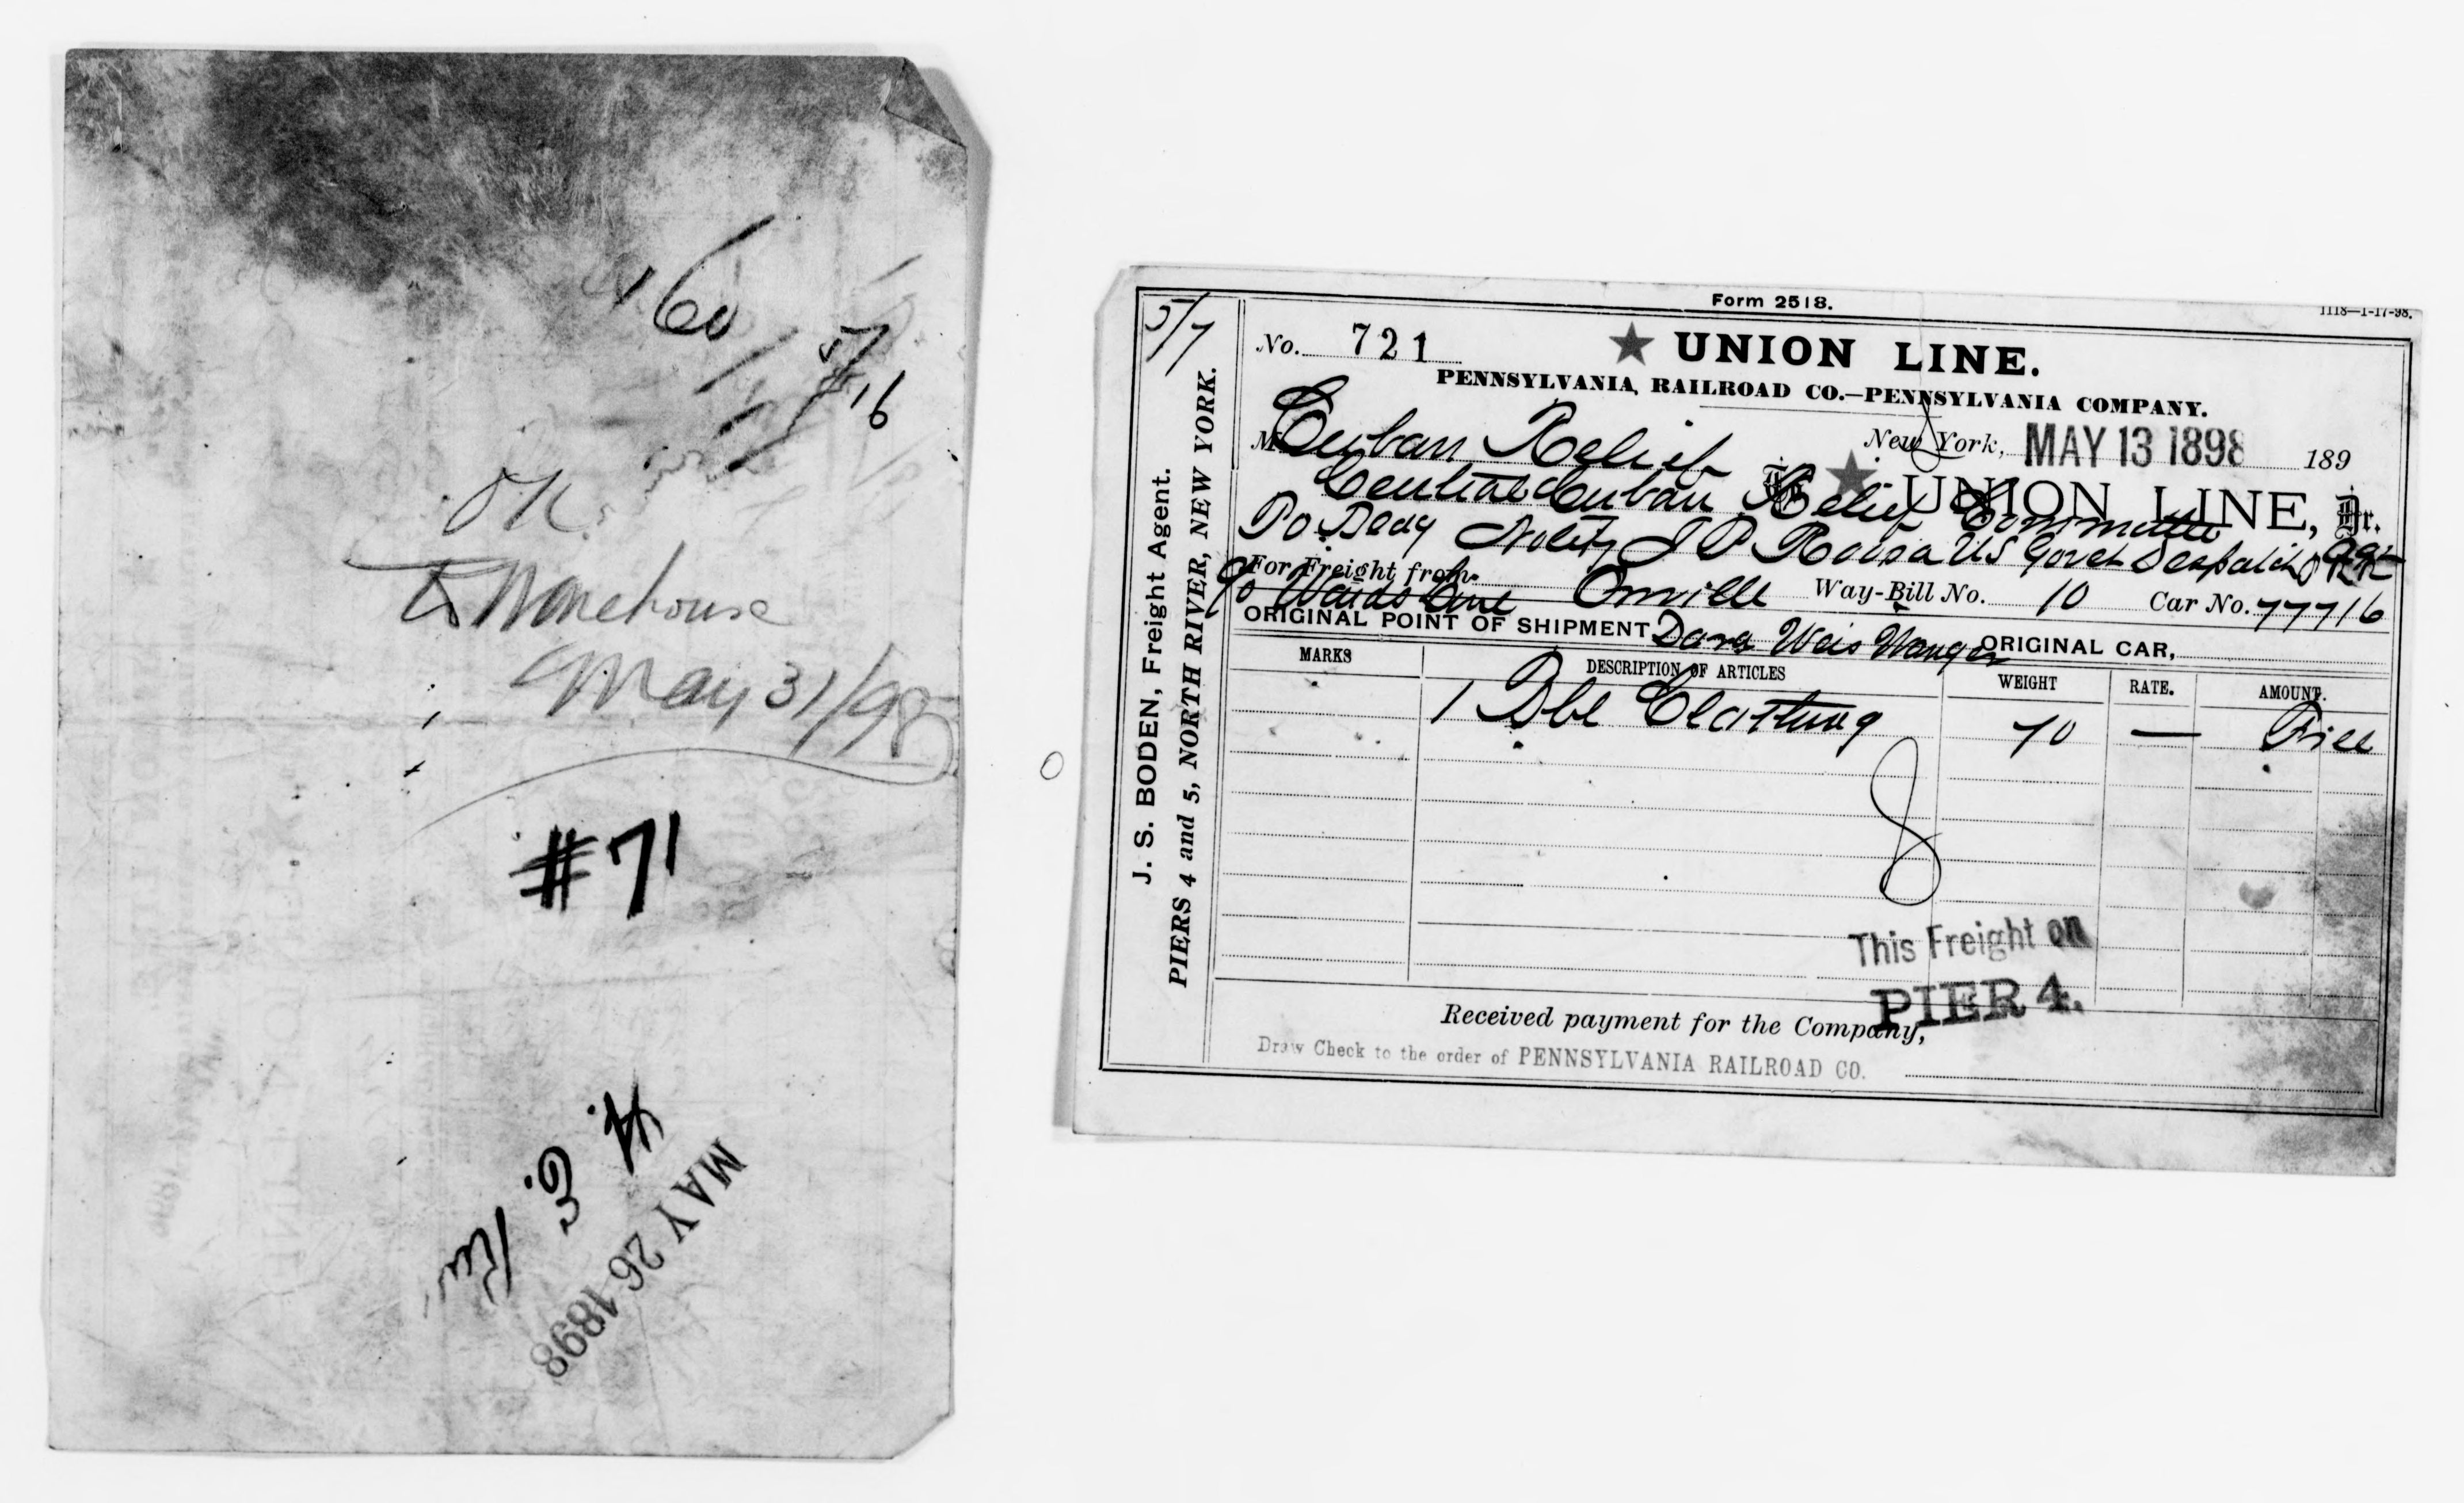 160
5/16
OK
Warehouse
May 31/98
#71
MAY 26 1898
Form 2518.
1118—1-17-98.
5/7
J. S. BODEN, Freight Agent.
PIERS 4 and 5, NORTH RIVER, NEW YORK.
No. 721
★ UNION LINE.
PENNSYLVANIA RAILROAD CO.—PENNSYLVANIA COMPANY.
New York, MAY 13 1898 189
M Cuban Relief
Central Cuban Relief Committee
To ★ UNION LINE, Dr.
Notify J P Roosa US Govet Despatch Agt
For Freight from Orrville Way-Bill No. 10 Car No. 77716
c/o Wards Line
ORIGINAL POINT OF SHIPMENT Dana Weis Wanger ORIGINAL CAR,
MARKS DESCRIPTION OF ARTICLES WEIGHT RATE. AMOUNT.
1 Bbl Clothing 70 — Free
This Freight on
PIER 4.
Received payment for the Company,
Draw Check to the order of PENNSYLVANIA RAILROAD CO.